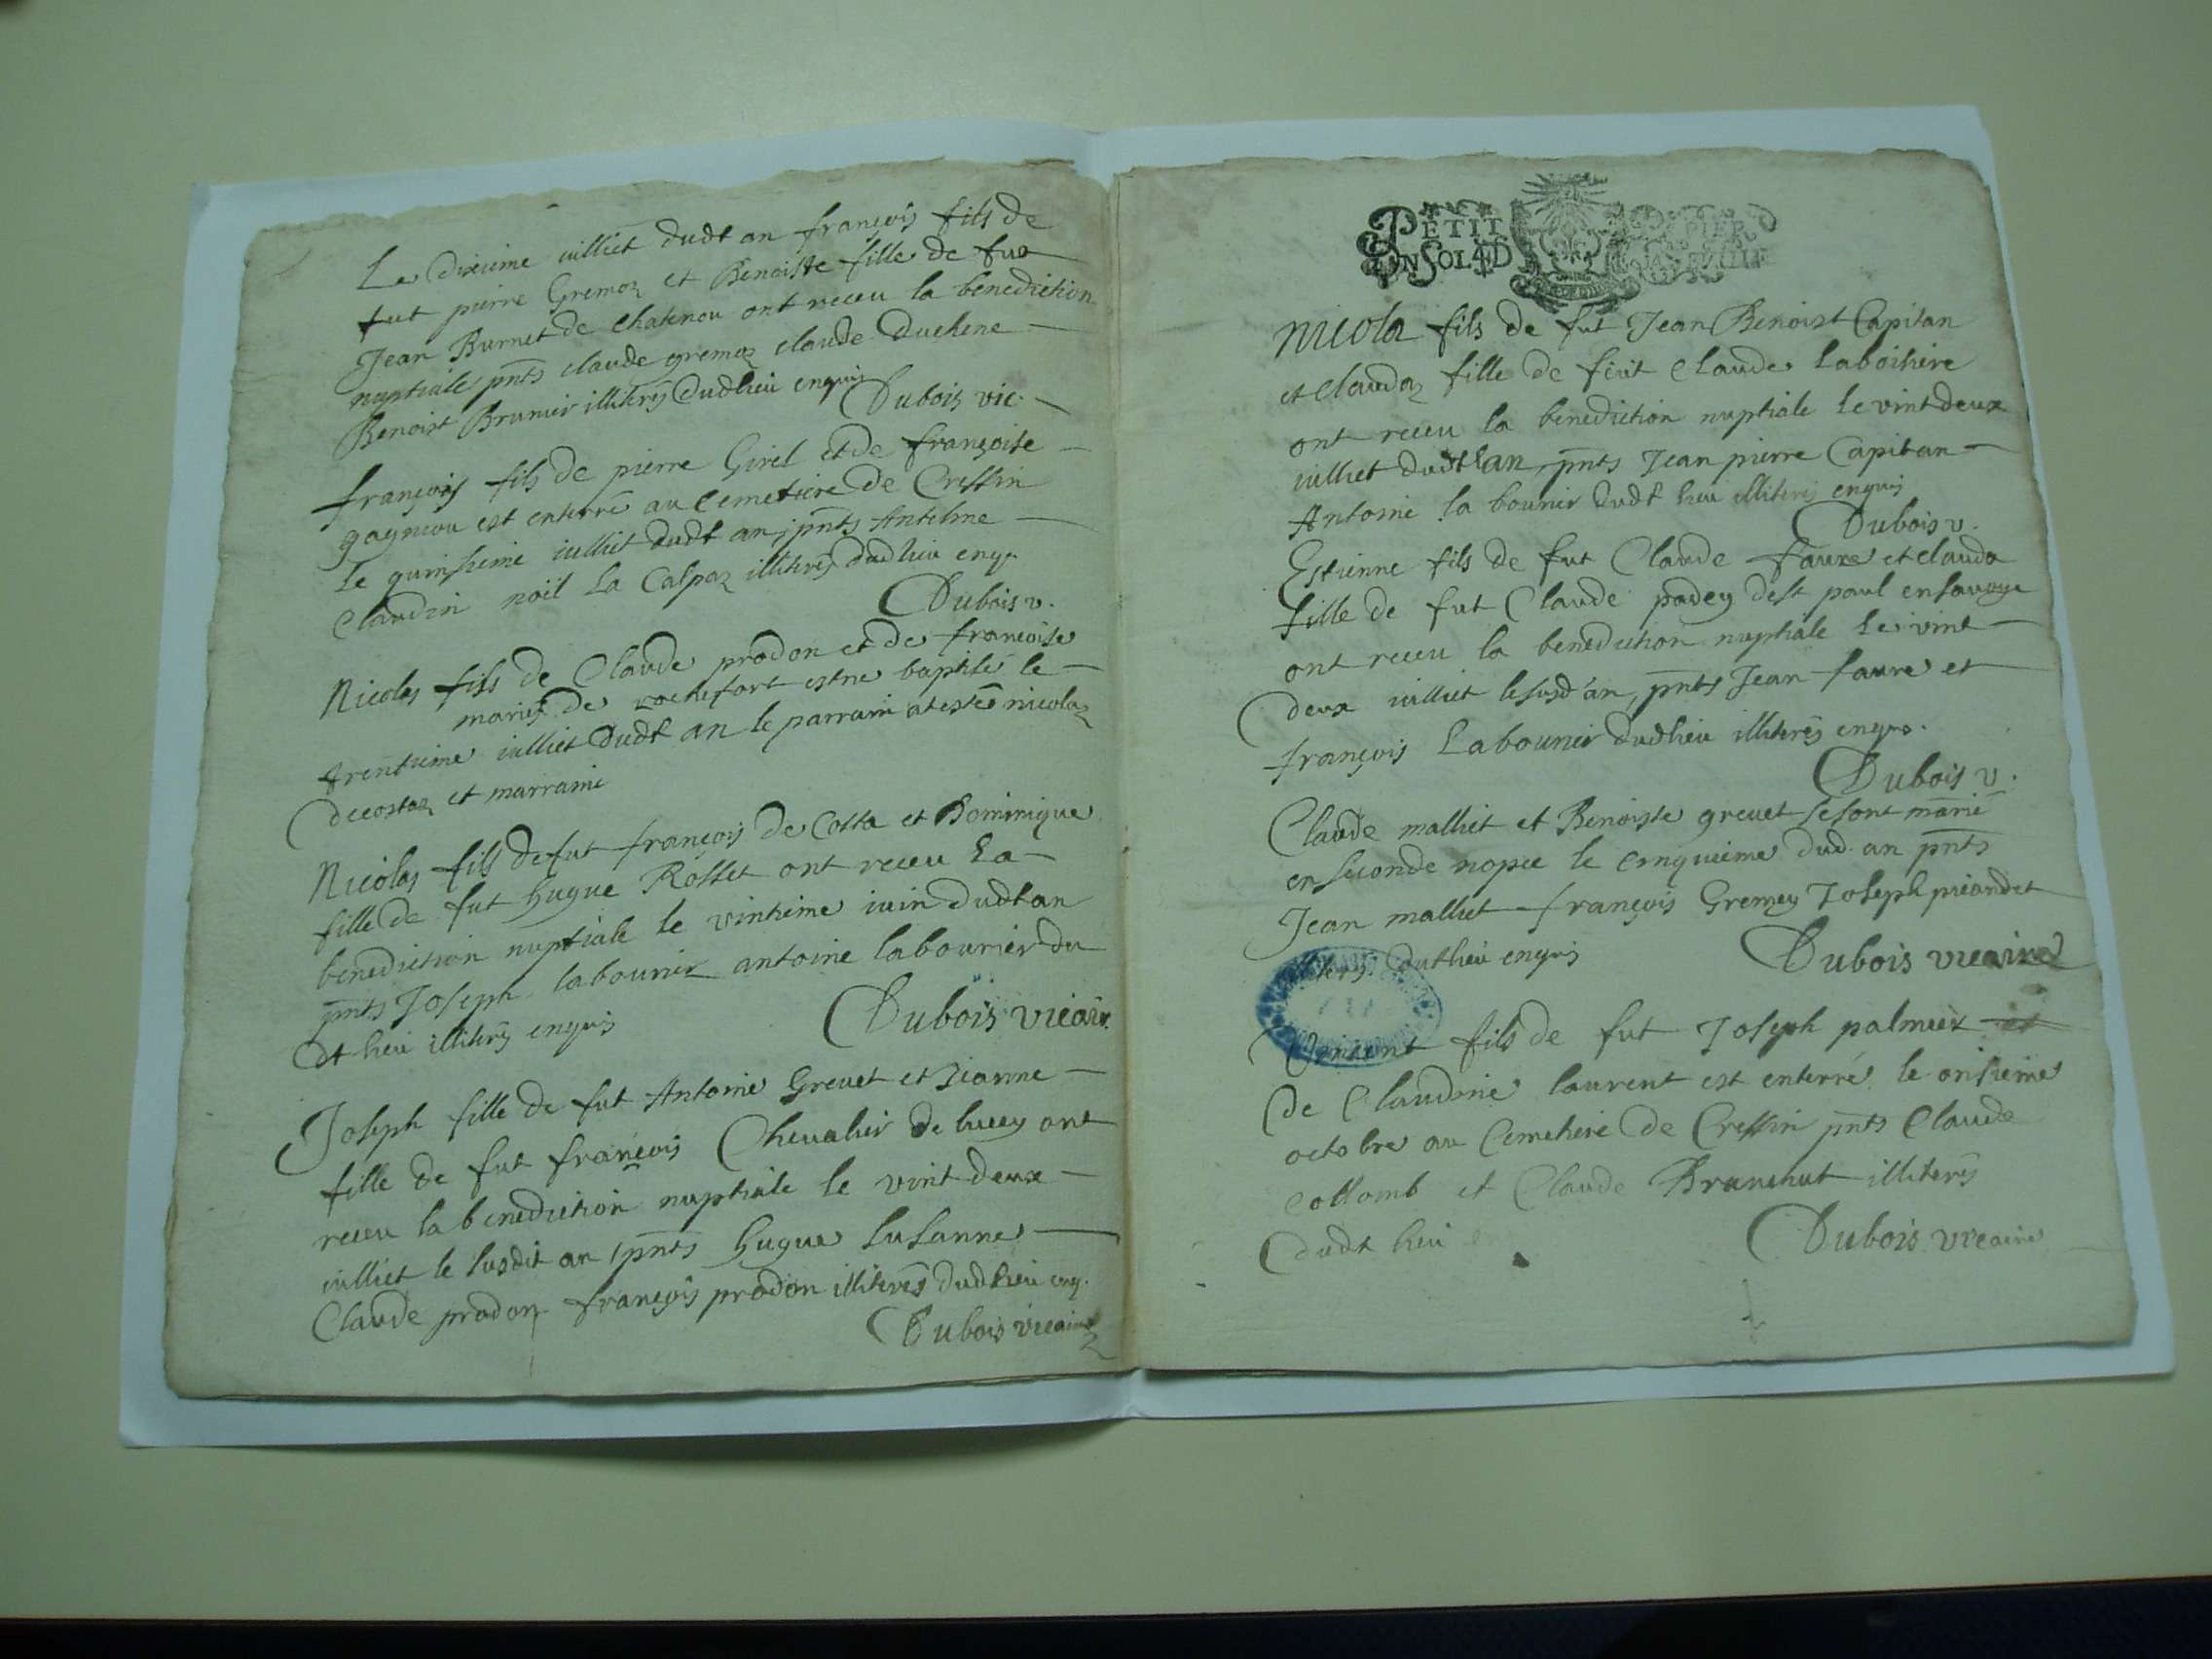 Le dixieme iulliet dudt an françois fils de
fut pierre Gremoz et Benoiste fille de fut
Jean Burnet de Chatenou ont receu la benediction
nuptiale pnts claude gremoz claude Duchene
Benoist Brunier illiterés dudlieu enquis
Dubois vic.
françois fils de pierre Girel et de françoise
gagneou est enterré au cemetiere de Cressin
le quinsieme iulliet dudt an, pnts Antelme
Claudin noël La Calpaz illiterés dudlieu enq.
Dubois v.
Nicolas fils de Claude prodon et de françoise
de rochefort estne baptisé le
trentieme iulliet dudt an le parrain nicolaz
decostaz et marraine
Nicolas fils de fut françois de Costa et Dominique
fille de fut hugue Rosset ont receu La
benediction nuptiale le vintieme iuin dudt an
pnts Joseph labounier antoine labourier du
dt lieu illiterés enquis
Dubois vicair.
Joseph fille de fut Antoine Grevet et Jeanne
fille de fut françois Chevalier de lucey ont
receu la benediction nuptiale le vint deux
iulliet le susdit an, pnts hugue Susanne
Claude prodon françois prodon illiterés dudlieu enq.
Dubois vicaire
PETIT PAPIER
UN SOL 4 D LA FEUILLE
Nicola fils de fut Jean Benoist Capitan
et Claudaz fille de feut Claude Laboissiere
ont receu la benediction nuptiale le vint deux
iulliet dudt an, pnts Jean pierre Capitan
Antoine la bounier dudt lieu illiteres enquis
Dubois v.
Estienne fils de fut Claude faure et clauda
fille de fut Claude padey de st paul en savoye
ont receu la benediction nuptiale le vint
deux iulliet le susd an, pnts Jean faure et
françois Labounier dudlieu illiterés enqus.
Dubois v.
Claude malliet et Benoiste grevet se sont marié
en seconde nopce le cinquieme dud. an pnts
Jean malliet françois Gremey Joseph
dudlieu enquis
Dubois vicaire
Vincent fils de fut Joseph palmier et
de Claudine laurent est enterré le onsieme
octobre au Cemetiere de Cressin pnts Claude
Collomb et Claude Brunehut illiterés
dudt lieu
Dubois vicaire